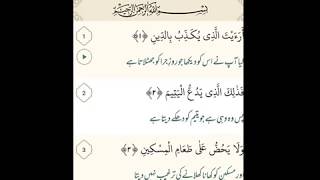 بِسْمِ اللهِ الرَّحْمٰنِ الرَّحِيْمِ
1
أَرَءَيْتَ الَّذِى يُكَذِّبُ بِالدِّينِ ﴿۱﴾
کیا آپ نے اس کو دیکھا جو روز جزا کو جھٹلاتا ہے
2
فَذٰلِكَ الَّذِى يَدُعُّ الْيَتِيْمَ ﴿۲﴾
پس وہ وہی ہے جو یتیم کو دھکے دیتا ہے
3
وَلَا يَحُضُّ عَلٰى طَعَامِ الْمِسْكِيْنِ ﴿۳﴾
اور مسکین کو کھانا کھلانے کی ترغیب نہیں دیتا